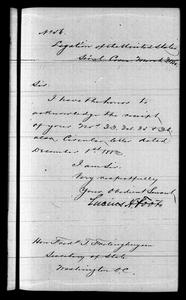 No 56.
Legation of the United States
Sir:
I have the honor to
acknowledge the receipt
of your Nos 23,
also Circular letter dated
December 1st 1882
I am Sir:
Very respectfully
Your Obedient Servant
Lucius H. Foote
Hon Fredk T. Frelinghuysen
Secretary of State
Washington D.C.